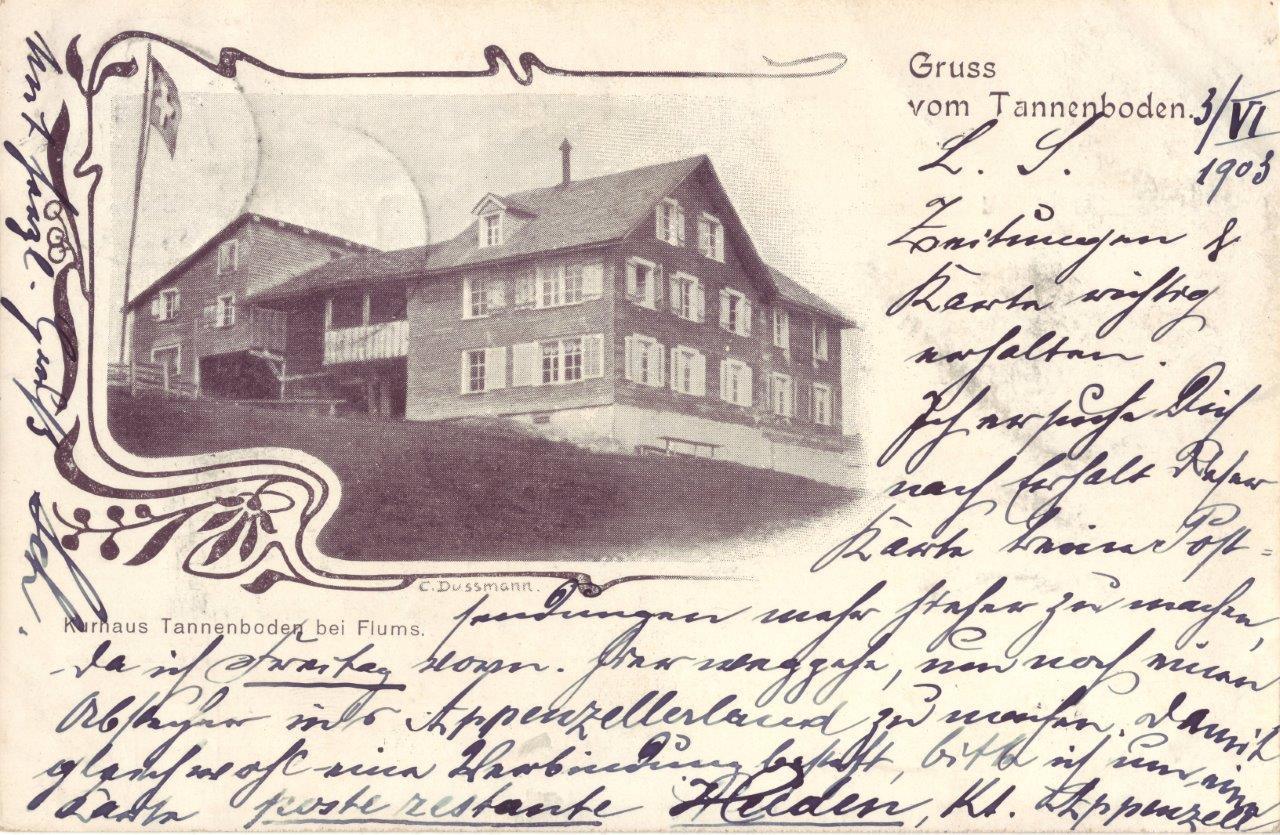 Gruss
vom Tannenboden. 3/VI
1903
L. S.
Zeitungen &
Karte richtig
erhalten.
Ich ersuche Dich
nach Erhalt dieser
Karte keine Post=
sendungen mehr hieher zu machen,
da ich Freitag vorm. hier weggehe, um noch einen
Abstecher ins Appenzellerland zu machen. Damit
gleichwohl eine Verbindung besteht, bitte ich um eine
Karte poste restante Heiden, Kt. Appenzell
C. Dussmann.
Kurhaus Tannenboden bei Flums.
Mit herzl. Gruß
Sch.